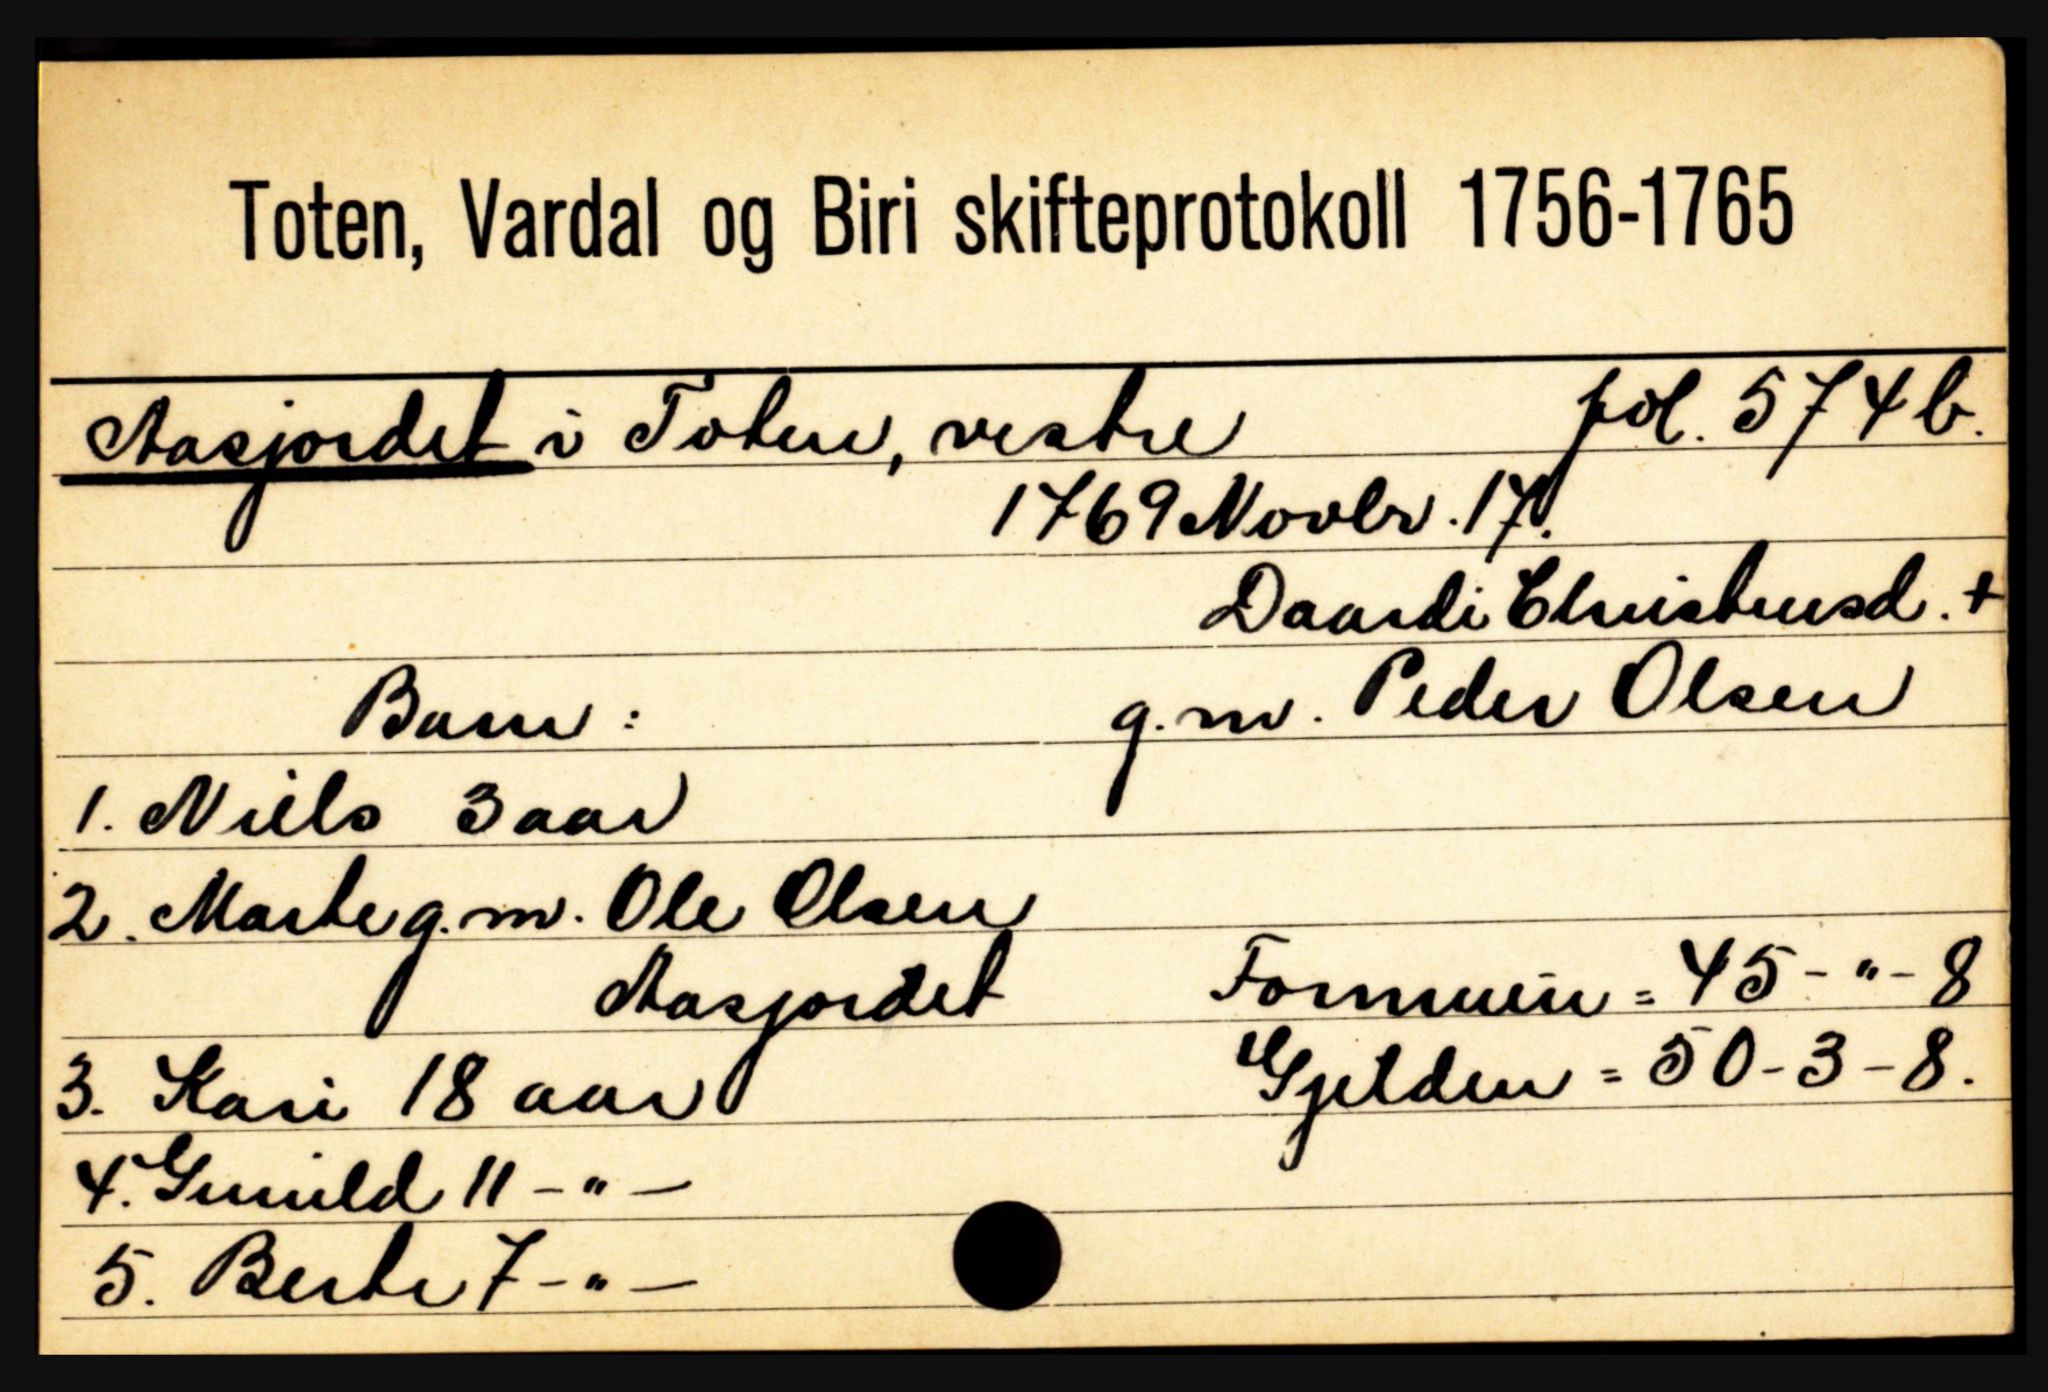 Toten, Vardal og Biri skifteprotokoll 1756-1765
Aasjordet i Toten, vestre fol. 574b.
1769 Novbr. 17.
Daardi Christensd. +
Barn: g.m. Peder Olsen
1. Niels 3 aar
2. Marte g.m. Ole Olsen
Aasjordet Formuen = 45-"-8
3. Kari 18 aar Gjelden = 50-3-8.
4. Gunild 11 -"-
5. Berte 7 -"-